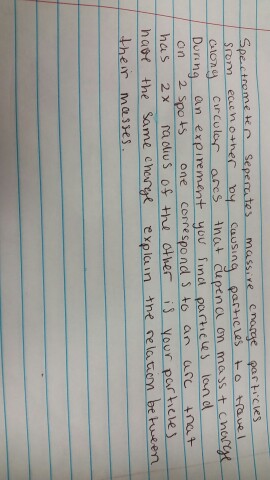 Spectrometer seperates massive charge particles
from eachother by causing particles to travel
along circular arcs that depend on mass + charge
During an expirement you find particles land
on 2 spots one corresponds to an arc that
has 2x radius of the other is your particles
have the same charge explain the relation between
their masses.